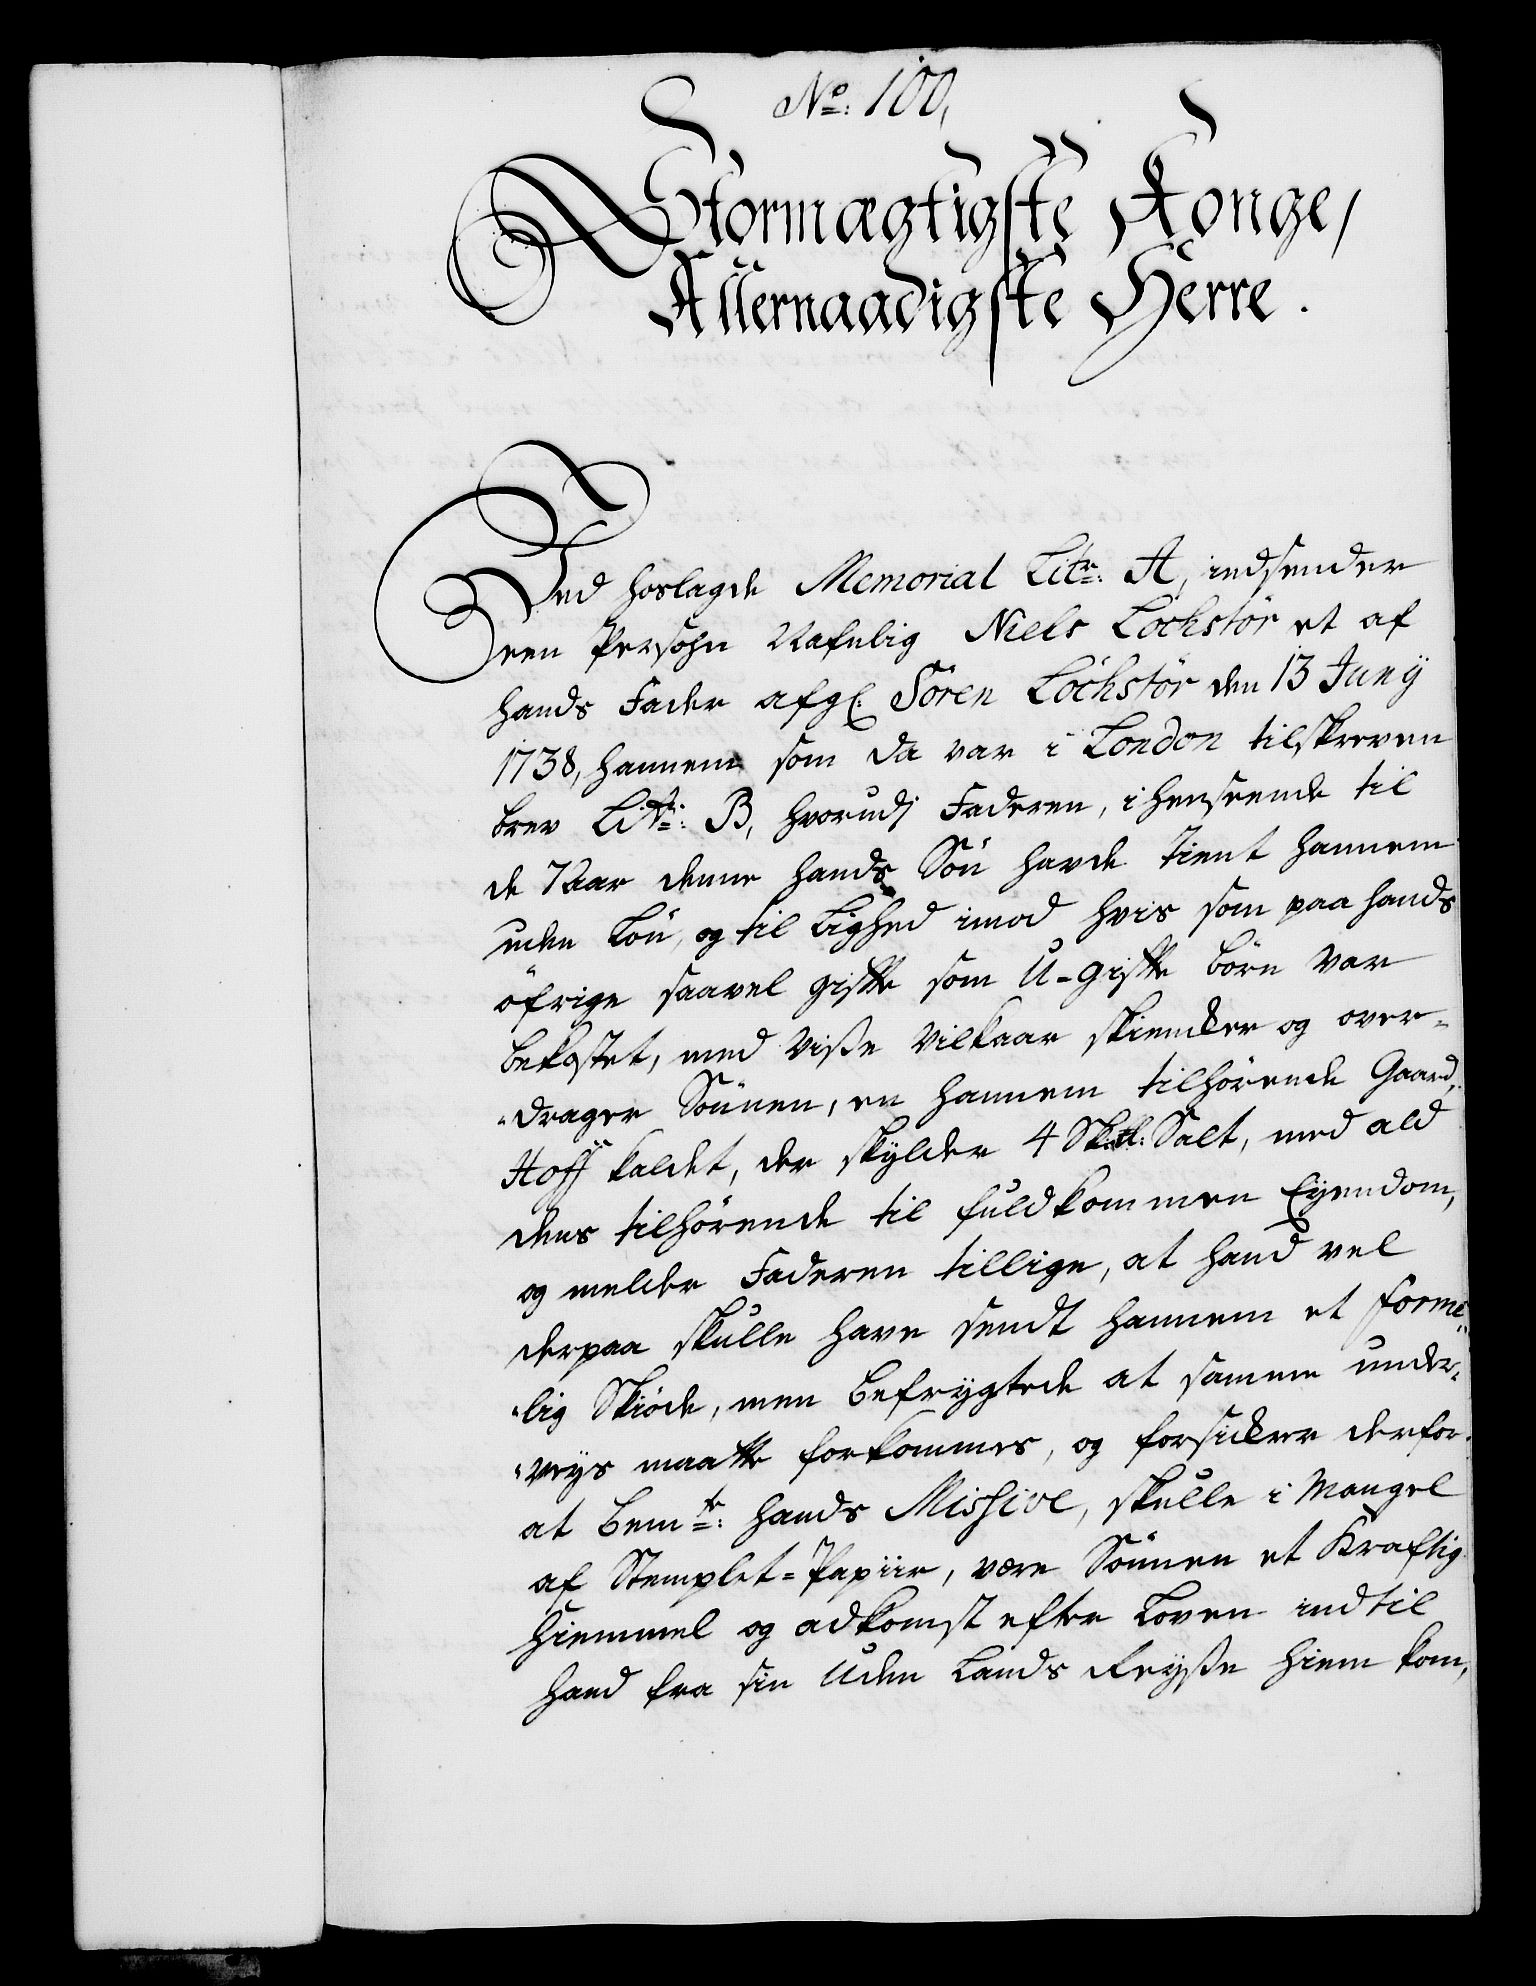 No: 100,
Stormægtigste Konge,
Allernaadigste Herre.
Ved hoslagde Memorial Litr: A, indsender
een Persohn Nafnlig Niels Löchstör et af
hands Fader afg: Sören Löchstör den 13 Juny
1738, hannem som da var i London tilskreven
brev Litr: B, hvorudj Faderen, i henseende til
de 7 Aar denne hands Sön havde tient hannem
uden Lön, og til Lighed imod hvis som paa hands
öfrige saavel gifte som U-gifte börn var
bekostet, med visse vilkaar skiencker og over-
drager Sönnen, en hannem tilhörende Gaard,
Hoff kaldet, der skylder 4 Sk: Salt, med ald
dens tilhörende til fuldkommen Eyendom,
og melder Faderen tillige, at hand vel
derpaa skulle have sendt hannem et forme-
lig Skiöde, men befrygtede at samme under-
veys maatte forkommes, og forsicker derfor
at bemte: hands Missive, skulle i Mangel
af Stemplet-Papiir, være Sönnen et Kraftig
Hiemmel og adkomst efter Loven indtil
hand fra sin Uden Lands Reysse hiem kom,